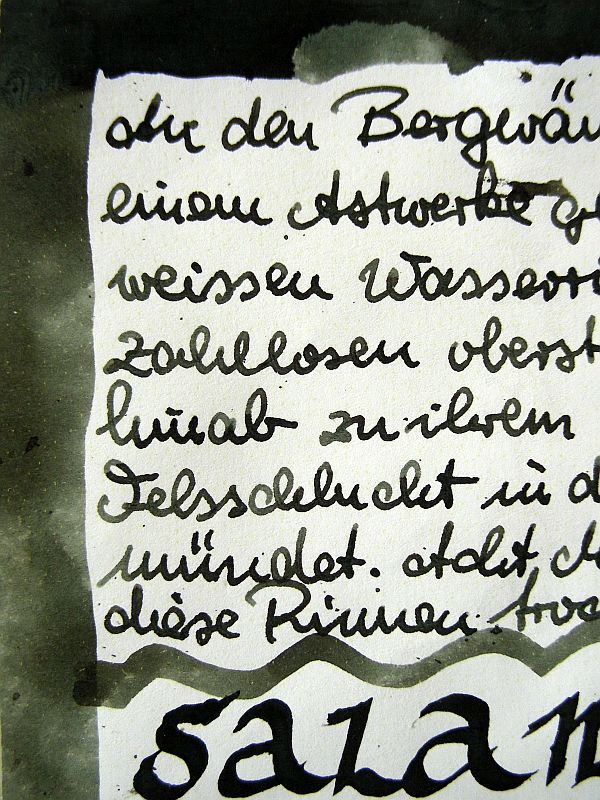 An den Bergwän
einem Astwerke gl
weissen Wasserri
zahllosen oberst
hinab zu ihrem
Felsschlucht in d
mündet. Acht Mo
diese Rinnen troc
salam